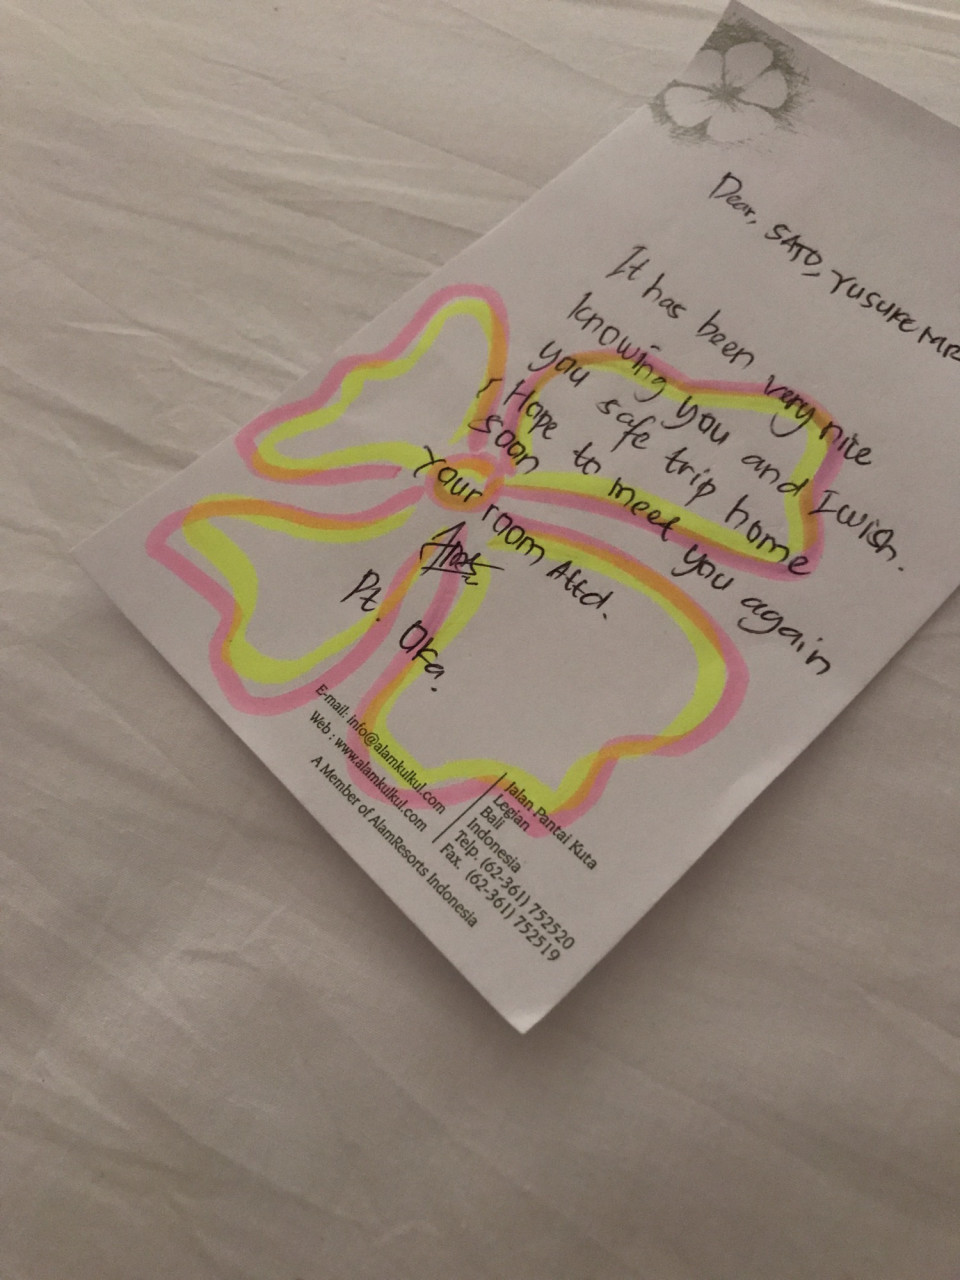 Dear, SATO, YUSUKE MR
It has been very nice
knowing you and I wish.
you safe trip home
I Hope to meet you again
soon
Your room Attd.
Pt. Oka.
E-mail: info@alamkulkul.com
Web : www.alamkulkul.com
A Member of AlamResorts Indonesia
Jalan Pantai Kuta
Legian
Bali
Indonesia
Telp. (62-361) 752520
Fax. (62-361) 752519